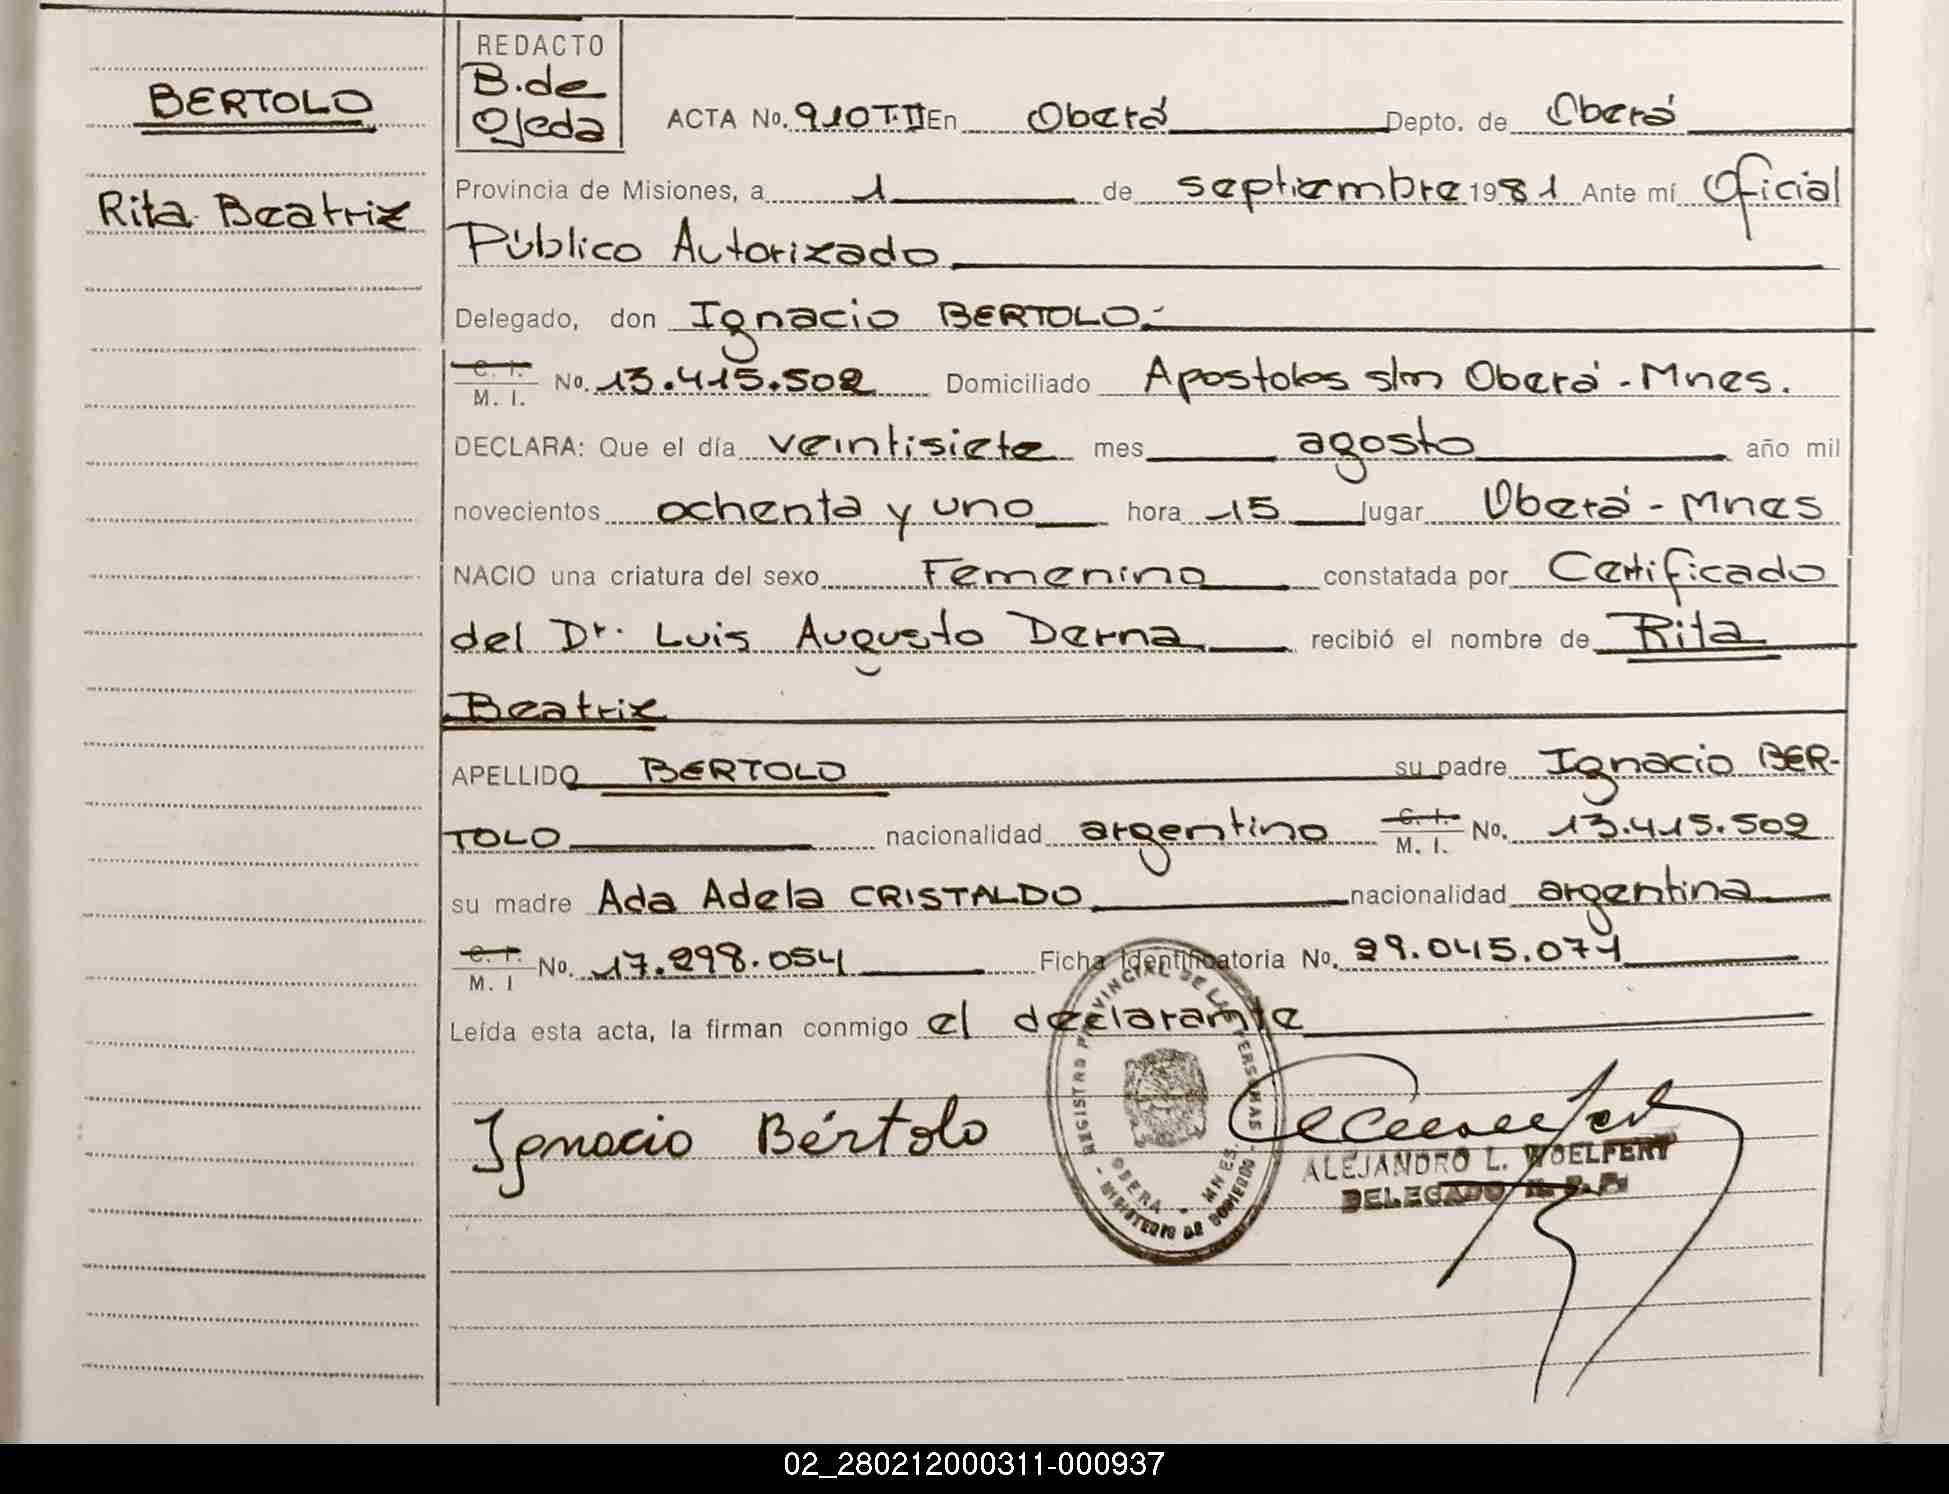 BERTOLO
Rita Beatriz
REDACTO
B. de
Ojeda
ACTA No. 910 T. II En Oberá Depto. de Oberá
Provincia de Misiones, a 1 de septiembre 1981 Ante mí Oficial
Público Autorizado
Delegado, don Ignacio BERTOLO.-
C. I.
M. I. No. 13.415.502 Domiciliado Apostoles s/n Oberá - Mnes.
DECLARA: Que el día veintisiete mes agosto año mil
novecientos ochenta y uno hora 15 lugar Oberá - Mnes
NACIO una criatura del sexo Femenino constatada por Certificado
del Dr. Luis Augusto Derna recibió el nombre de Rita
Beatriz
APELLIDO BERTOLO su padre Ignacio BER-
TOLO nacionalidad argentino C. I. M. I. No. 13.415.502
su madre Ada Adela CRISTALDO nacionalidad argentina
C. I.
M. I No. 17.298.054 Ficha Identificatoria No. 29.045.071
Leída esta acta, la firman conmigo el declarante
Ignacio Bértolo
REGISTRO PROVINCIAL DE LAS PERSONAS - MINISTERIO DE GOBIERNO -
OBERA - MNES.
ALEJANDRO L. WOELFERT
DELEGADO R. P. P.
02_280212000311-000937